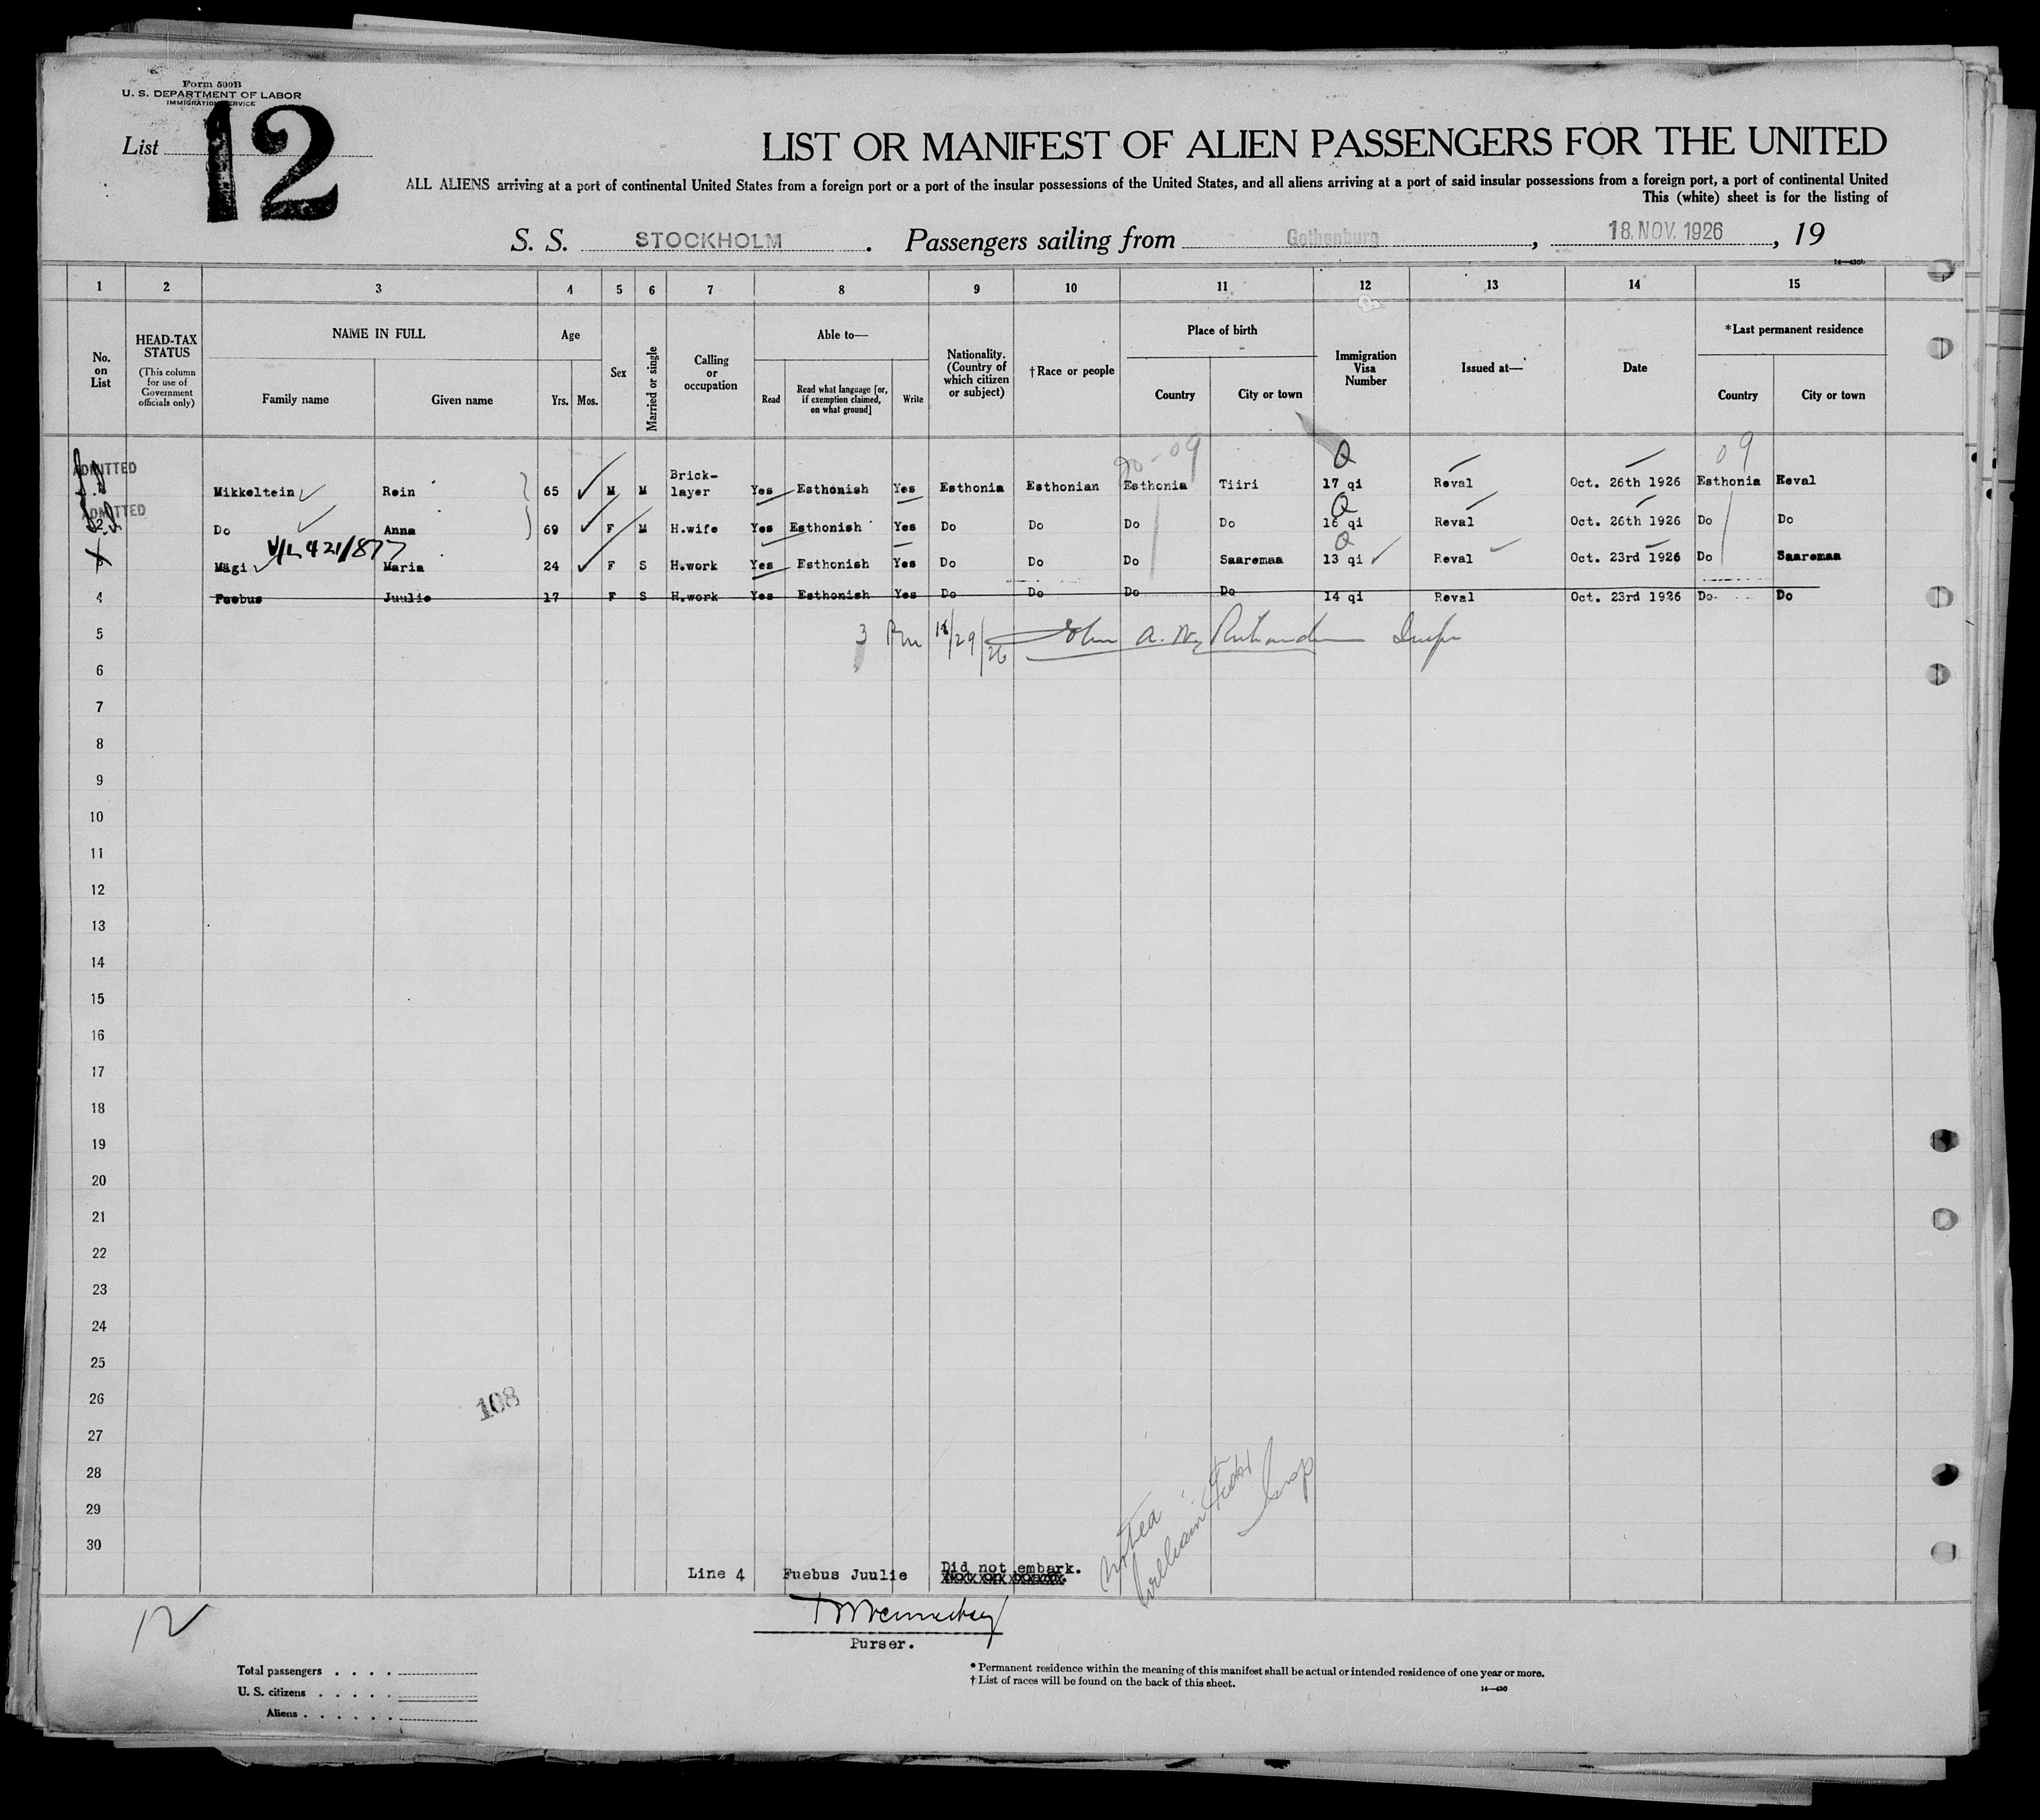 Form 500B
U. S. DEPARTMENT OF LABOR
IMMIGRATION SERVICE
List 12
LIST OR MANIFEST OF ALIEN PASSENGERS FOR THE UNITED
ALL ALIENS arriving at a port of continental United States from a foreign port or a port of the insular possessions of the United States, and all aliens arriving at a port of said insular possessions from a foreign port, a port of continental United
This (white) sheet is for the listing of
S. S. STOCKHOLM . Passengers sailing from Gothenburg , 18. NOV. 1926 , 19
14—430b
1 2 3 4 5 6 7 8 9 10 11 12 13 14 15
No. on List
HEAD-TAX STATUS
(This column for use of Government officials only)
NAME IN FULL
Family name Given name
Age
Yrs. Mos.
Sex
Married or single
Calling or occupation
Able to—
Read
Read what language [or, if exemption claimed, on what ground]
Write
Nationality. (Country of which citizen or subject)
†Race or people
Place of birth
Country City or town
Immigration Visa Number
Issued at—
Date
*Last permanent residence
Country City or town
09
ADMITTED Mikkeltein Rein 65 M M Brick-layer Yes Esthonish Yes Esthonia Esthonian Esthonia Tiiri Q 17 qi Reval Oct. 26th 1926 Esthonia Reval
ADMITTED 2 Do Anna 69 F M H.wife Yes Esthonish Yes Do Do Do Do Q 16 qi Reval Oct. 26th 1926 Do Do
V/L 421/877
Mägi Maria 24 F S H.work Yes Esthonish Yes Do Do Do Saaremaa Q 13 qi Reval Oct. 23rd 1926 Do Saaremaa
4 Fuebus Juulie 17 F S H.work Yes Esthonish Yes Do Do Do Do 14 qi Reval Oct. 23rd 1926 Do Do
5 3 John A.
6
7
8
9
10
11
12
13
14
15
16
17
18
19
20
21
22
23
24
25
26
108
27
28
29
30
Noted
William
Insp
Line 4 Fuebus Juulie Did not embark.
Purser.
12
Total passengers . . . .
U. S. citizens . . . . .
Aliens . . . . . .
* Permanent residence within the meaning of this manifest shall be actual or intended residence of one year or more.
† List of races will be found on the back of this sheet.
14—430